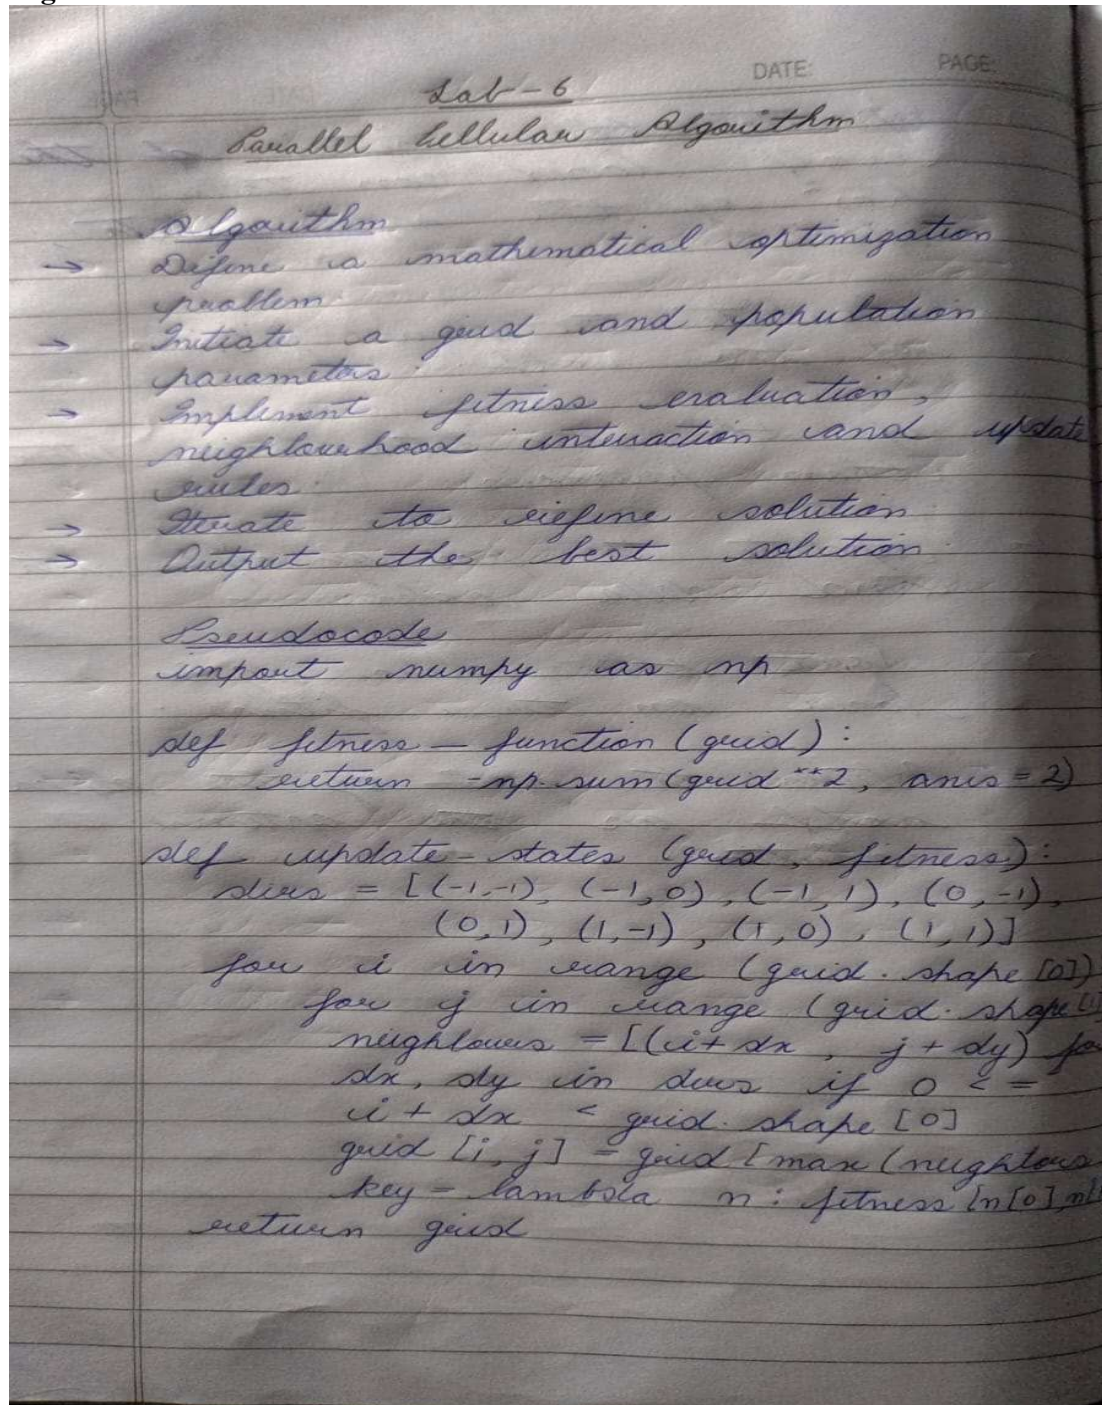 DATE: PAGE:
Lab - 6
Parallel Cellular Algorithm
Algorithm
→ Define a mathematical optimization
problem
→ Initiate a grid and population
parameters
→ Implement fitness evaluation,
neighbourhood interaction and update
rules
→ Iterate to refine solution
→ Output the best solution
Pseudocode
import numpy as np
def fitness_function (grid) :
return -np.sum (grid **2, axis = 2)
def update_states (grid, fitness) :
dirs = [(-1,-1), (-1,0), (-1,1), (0,-1),
(0,1), (1,-1), (1,0), (1,1)]
for i in range (grid.shape [0])
for j in range (grid.shape [1]
neighbours = [(i+dx, j+dy) for
dx, dy in dirs if 0 <=
i + dx < grid.shape [0]
grid [i, j] = grid [max (neighbours
key = lambda n : fitness [n[0], n[
return grid